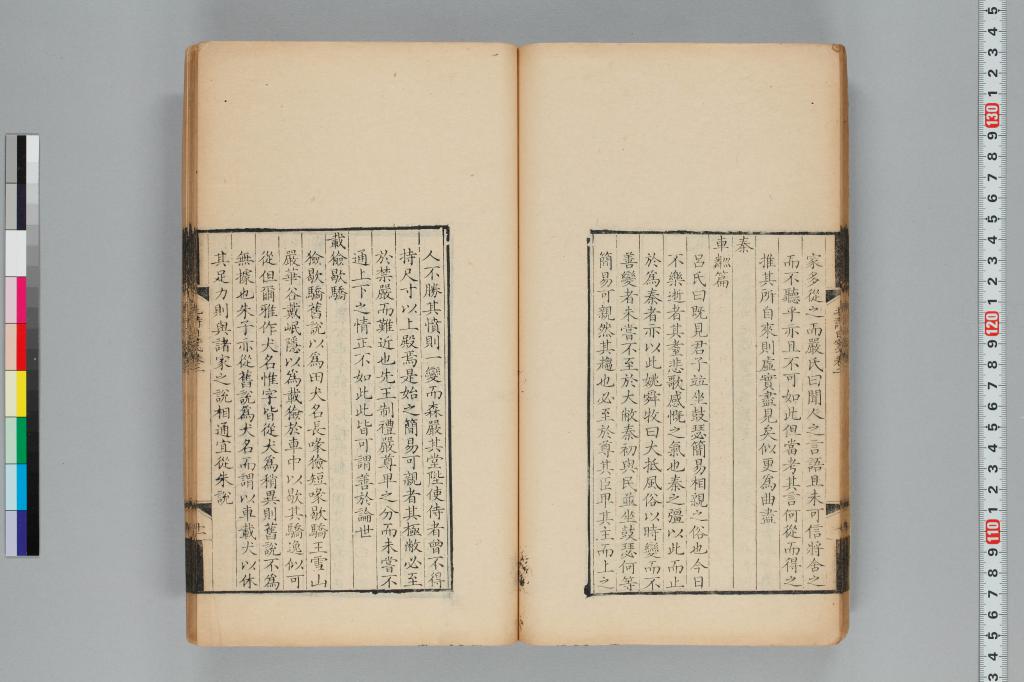 家多從之而嚴氏曰聞人之言語且未可信將舍之
而不聽乎亦且不可如此但當考其言何從而得之
推其所自來則虛實盡見矣似更為曲盡
秦
車鄰篇
呂氏曰既見君子竝坐鼓瑟簡易相親之俗也今日
不樂逝者其耋悲歌感慨之氣也秦之彊以此而止
於為秦者亦以此姚舜牧曰大抵風俗以時變而不
善變者未嘗不至於大敝秦初與民並坐鼓瑟何等
簡易可親然其趨也必至於尊其臣卑其主而上之
人不勝其憤則一變而森嚴其堂陛使侍者曾不得
持尺寸以上殿焉是始之簡易可親者其極敝必至
於禁嚴而難近也先王制禮嚴尊卑之分而未嘗不
通上下之情正不如此此皆可謂善於論世
載獫歇驕
獫歇驕舊說以為田犬名長喙獫短喙歇驕王雪山
嚴華谷戴岷隱以為載獫於車中以歇其驕逸似可
從但爾雅作犬名惟字皆從犬為稍異則舊說不為
無據也朱子亦從舊說為犬名而謂以車載犬以休
其足力則與諸家之說相通宜從朱說